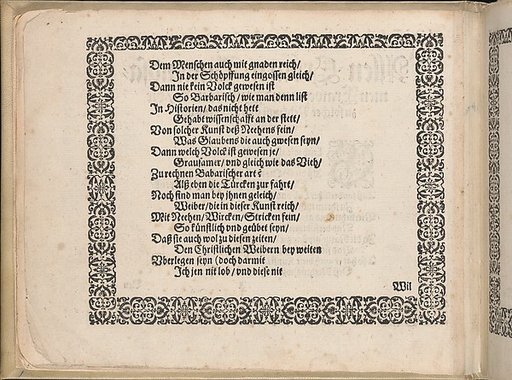 Dem Menschen auch mit gnaden reich/
In der Schöpffung eingossen gleich/
Dann nie kein Volck gewesen ist
So Barbarisch/ wie man denn list
In Historien/ das nicht hett
Gehabt wissenschafft an der stett/
Von solcher Kunst deß Neehens fein/
Was Glaubens die auch gwesen seyn/
Dann welch Volck ist gewesen je/
Grausamer/ vnd gleich wie das Vieh/
Zu rechnen Babarischer art?
Alß eben die Türcken zur fahrt/
Noch find man bey jhnen gleich/
Weiber/ die in dieser Kunst reich/
Mit Neehen/ Wircken/ Stricken fein/
So künstlich vnd geübet seyn/
Daß sie auch wol zu diesen zeiten/
Den Christlichen Weibern bey weiten
Vberlegen seyn (doch darmit
Ich jen nit lob/ vnd diese nit
Wil